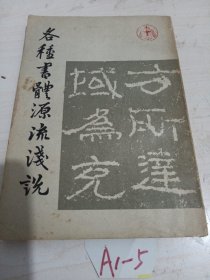 各種書體源流淺說
方所達
域為充
A1-5